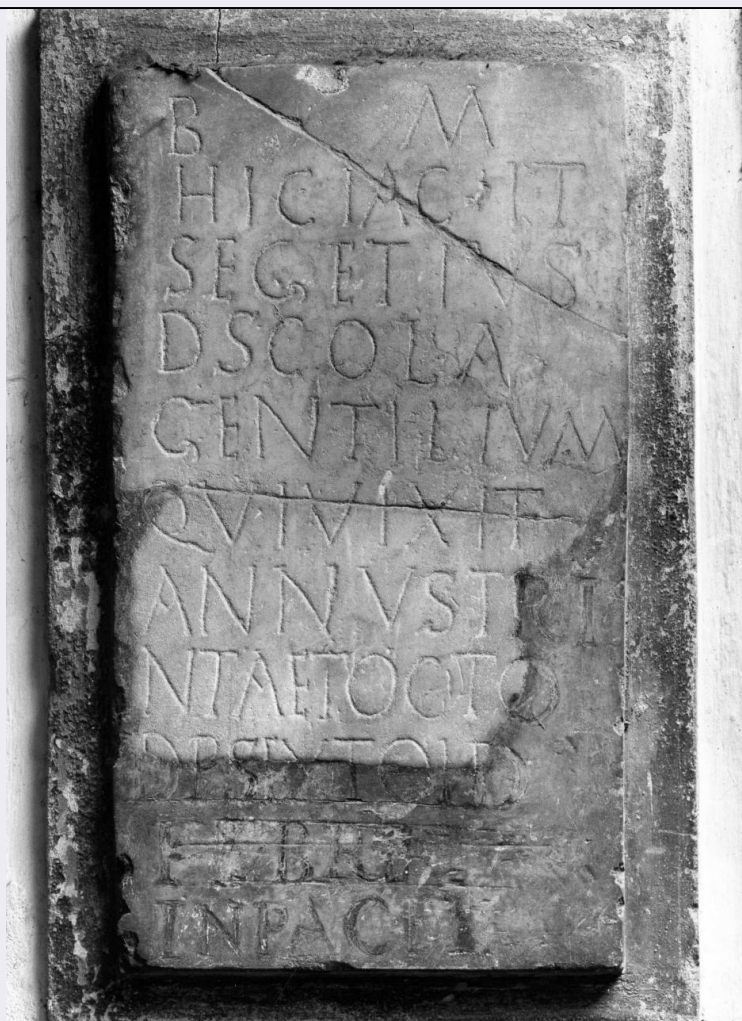 B M
HIC IACIT
SEGETIVS
D SCOLA
GENTILIVM
QVI VIXIT
ANNVS TRI
NTA ET OCTO
IN PACE